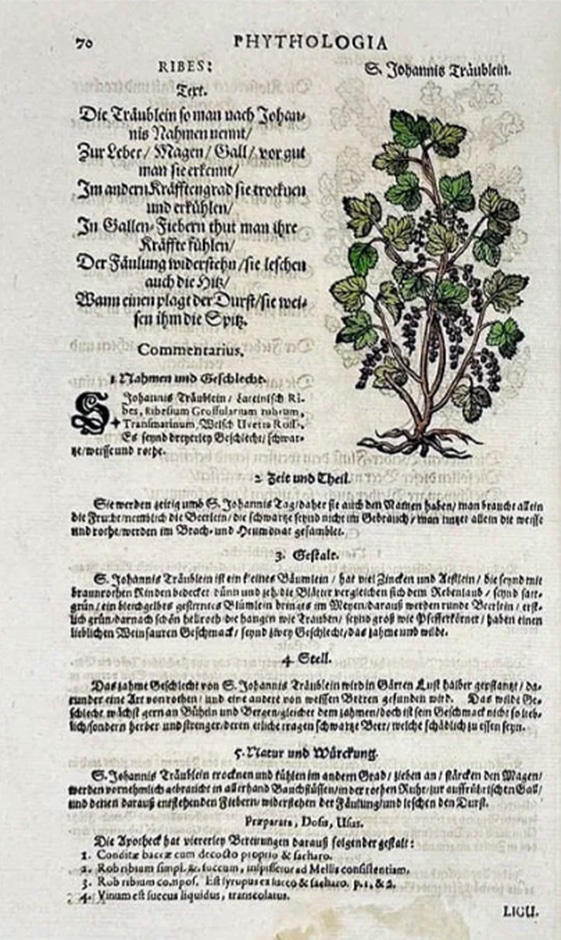 70
PHYTHOLOGIA
RIBES:
S. Johannis Träublein.
Text.
Die Träublein so man nach Johan-
nis Nahmen nennt/
Zur Leber/ Magen/ Gall/ vor gut
man sie erkennt/
Im andern Kräfftengrad sie trocknen
und erkühlen/
In Gallen-Fiebern thut man ihre
Kräffte fühlen/
Der Fäulung widerstehn/sie leschen
auch die Hitz/
Wann einen plagt der Durst/sie wei-
sen ihm die Spitz.
Commentarius.
1. Nahmen und Geschlecht.
S. Johannis Träublein/ Lateinisch Ri-
bes, Ribesium Grossularum rubrum,
Transmarinum, Welsch Uvetta Ross.
Es seynd dreyerley Geschlecht/ schwar-
tze/weisse und rothe.
2. Zeit und Theil.
Sie werden zeitig umb S. Johannis Tag/daher sie auch den Namen haben/ man braucht allein
die Frucht/nemblich die Beerlein/ die schwartze seynd nicht im Gebrauch/ man nutzet allein die weisse
und rothe/werden im Brach- und Heumonat gesamblet.
3. Gestalt.
S. Johannis Träublein ist ein kleines Bäumlein / hat viel Zincken und Aestlein / die seynd mit
braunrothen Rinden bedecket dünn und zeh/ die Blätter vergleichen sich dem Rebenlaub / seynd satt-
grün/ ein bleichgelbes gesterntes Blümlein bringts im Meyen/darauß werden runde Beerlein / erst-
lich grün/darnach schön hellroth die hangen wie Trauben/ seynd groß wie Pfefferkörner / haben einen
lieblichen Weinsauren Geschmack / seynd zwey Geschlecht/das zahme und wilde.
4. Stell.
Das zahme Geschlecht von S. Johannis Träublein wird in Gärten Lust halber gepflantzt / da-
runder eine Art von rothen / und eine andere von weissen Beeren gefunden wird. Das wilde Ge-
schlecht wächst gern an Büheln und Bergen/gleichet dem zahmen/doch ist sein Geschmack nicht so lieb-
lich/sondern herber und strenger/deren etliche tragen schwartze Beer/ welche schädlich zu essen seyn.
5. Natur und Würckung.
S. Johannis Träublein trocknen und kühlen im andern Grad/ ziehen an / stärcken den Magen/
werden vornehmlich gebraucht in allerhand Bauchflüssen/in der rothen Ruhr/zur auffrührischen Gall/
und denen darauß entstehenden Fiebern/ widerstehen der Fäulung/und leschen den Durst.
Præparata, Dosis, Usus.
Die Apotheck hat viererley Bereitungen darauß folgender gestalt:
1. Conditæ baccæ cum decocto proprio & sacharo.
2. Rob ribium simpl. & succum, inspissetur ad Mellis consistentiam.
3. Rob ribium compos. Est syrupus ex succo & sacharo. p. 1. & 2.
4. Vinum est succus liquidus, transcolatus.
LIGU.